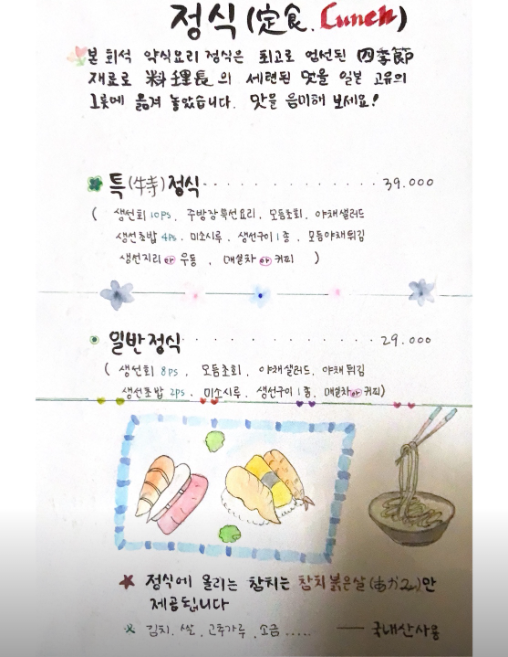 정식 (定食. Lunch)
본 회석 약식요리 정식은 최고로 엄선된 四季節
재료로 料理長의 세련된 맛을 일본 고유의
그릇에 옮겨 놓았습니다. 맛을 음미해 보세요!
특(特)정식 · · · · · · · · · · · · · · · · 39.000
( 생선회 10PS. 주방장특선요리. 모듬초회. 야채샐러드
생선초밥 4PS. 미소시루. 생선구이 1종. 모듬야채튀김
생선지리 or 우동. (매실차 or 커피 )
일반정식 · · · · · · · · · · · · · · 29.000
( 생선회 8PS. 모듬초회. 야채샐러드. 야채튀김
생선초밥 2PS. 미소시루. 생선구이 1종. 매실차 or 커피)
★ 정식에 올리는 참치는 참치 붉은살 (あかみ)만
제공됩니다
김치. 쌀. 고추가루. 소금 ..... ── 국내산사용